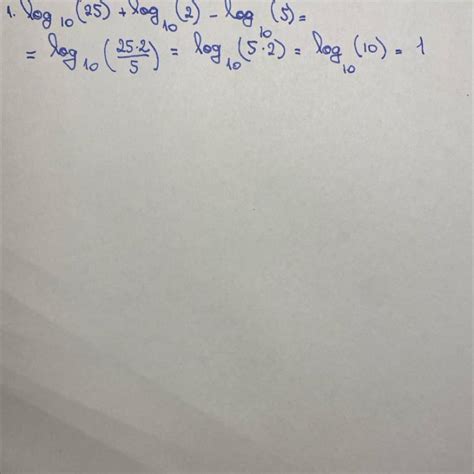 1. log₁₀(25) + log₁₀(2) - log₁₀(5) =
= log₁₀(25·2/5) = log₁₀(5·2) = log₁₀(10) = 1